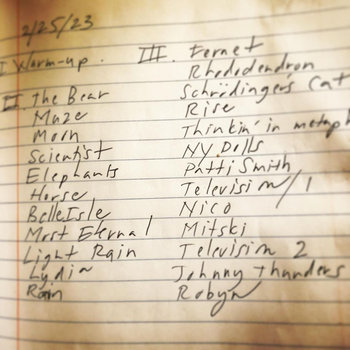 2/25/23
I Warm-up.
II The Bear
Maze
Moon
Scientist
Elephants
Horse
Belle Isle
Most Eternal
Light Rain
Lydia
Rain
III. Fernet
Rhododendron
Schrödinger's Cat
Rise
Thinkin' in metaph
NY Dolls
Patti Smith
Television/1
Nico
Mitski
Television 2
Johnny Thunders
Robyn